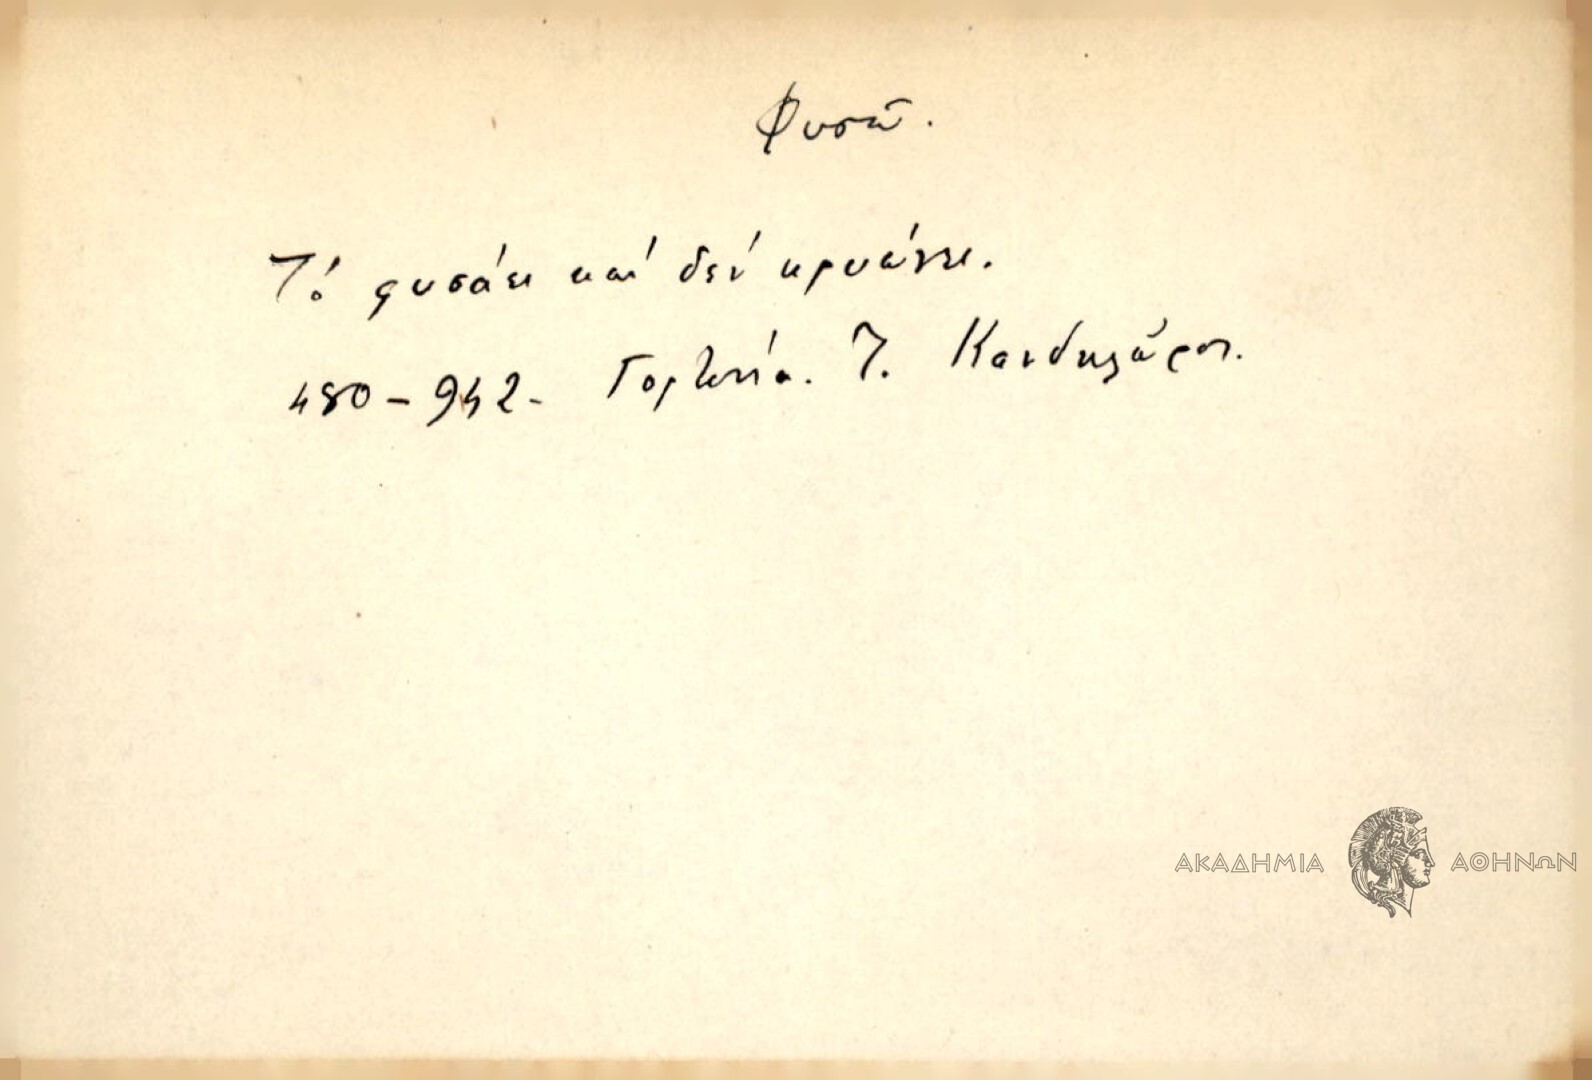 Φυσῶ.
Τό φυσάει καί δέν κρυώνει.
480-942- Γορτυνία. Τ. Κανδηλῶρος.
ΑΚΑΔΗΜΙΑ ΑΘΗΝΩΝ